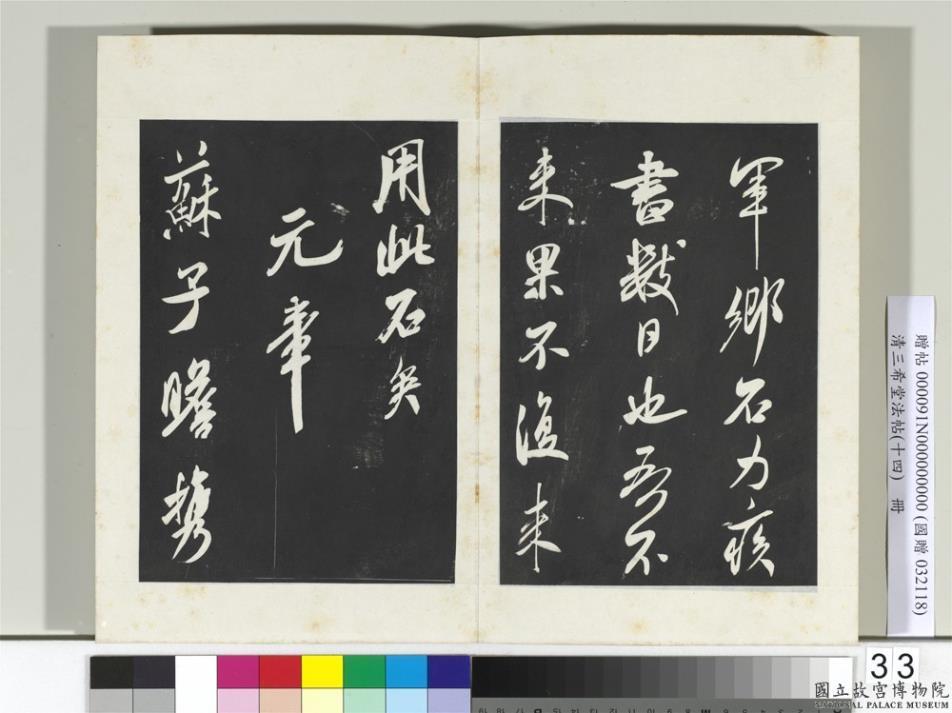 軍鄉石力疾
書數日也吾不
来果不復来
用此石矣
元章
蘇子瞻攜
贈帖 000091N000000000 (國贈 032118)
清三希堂法帖(十四) 冊
33
國立故宮博物院
NATIONAL PALACE MUSEUM